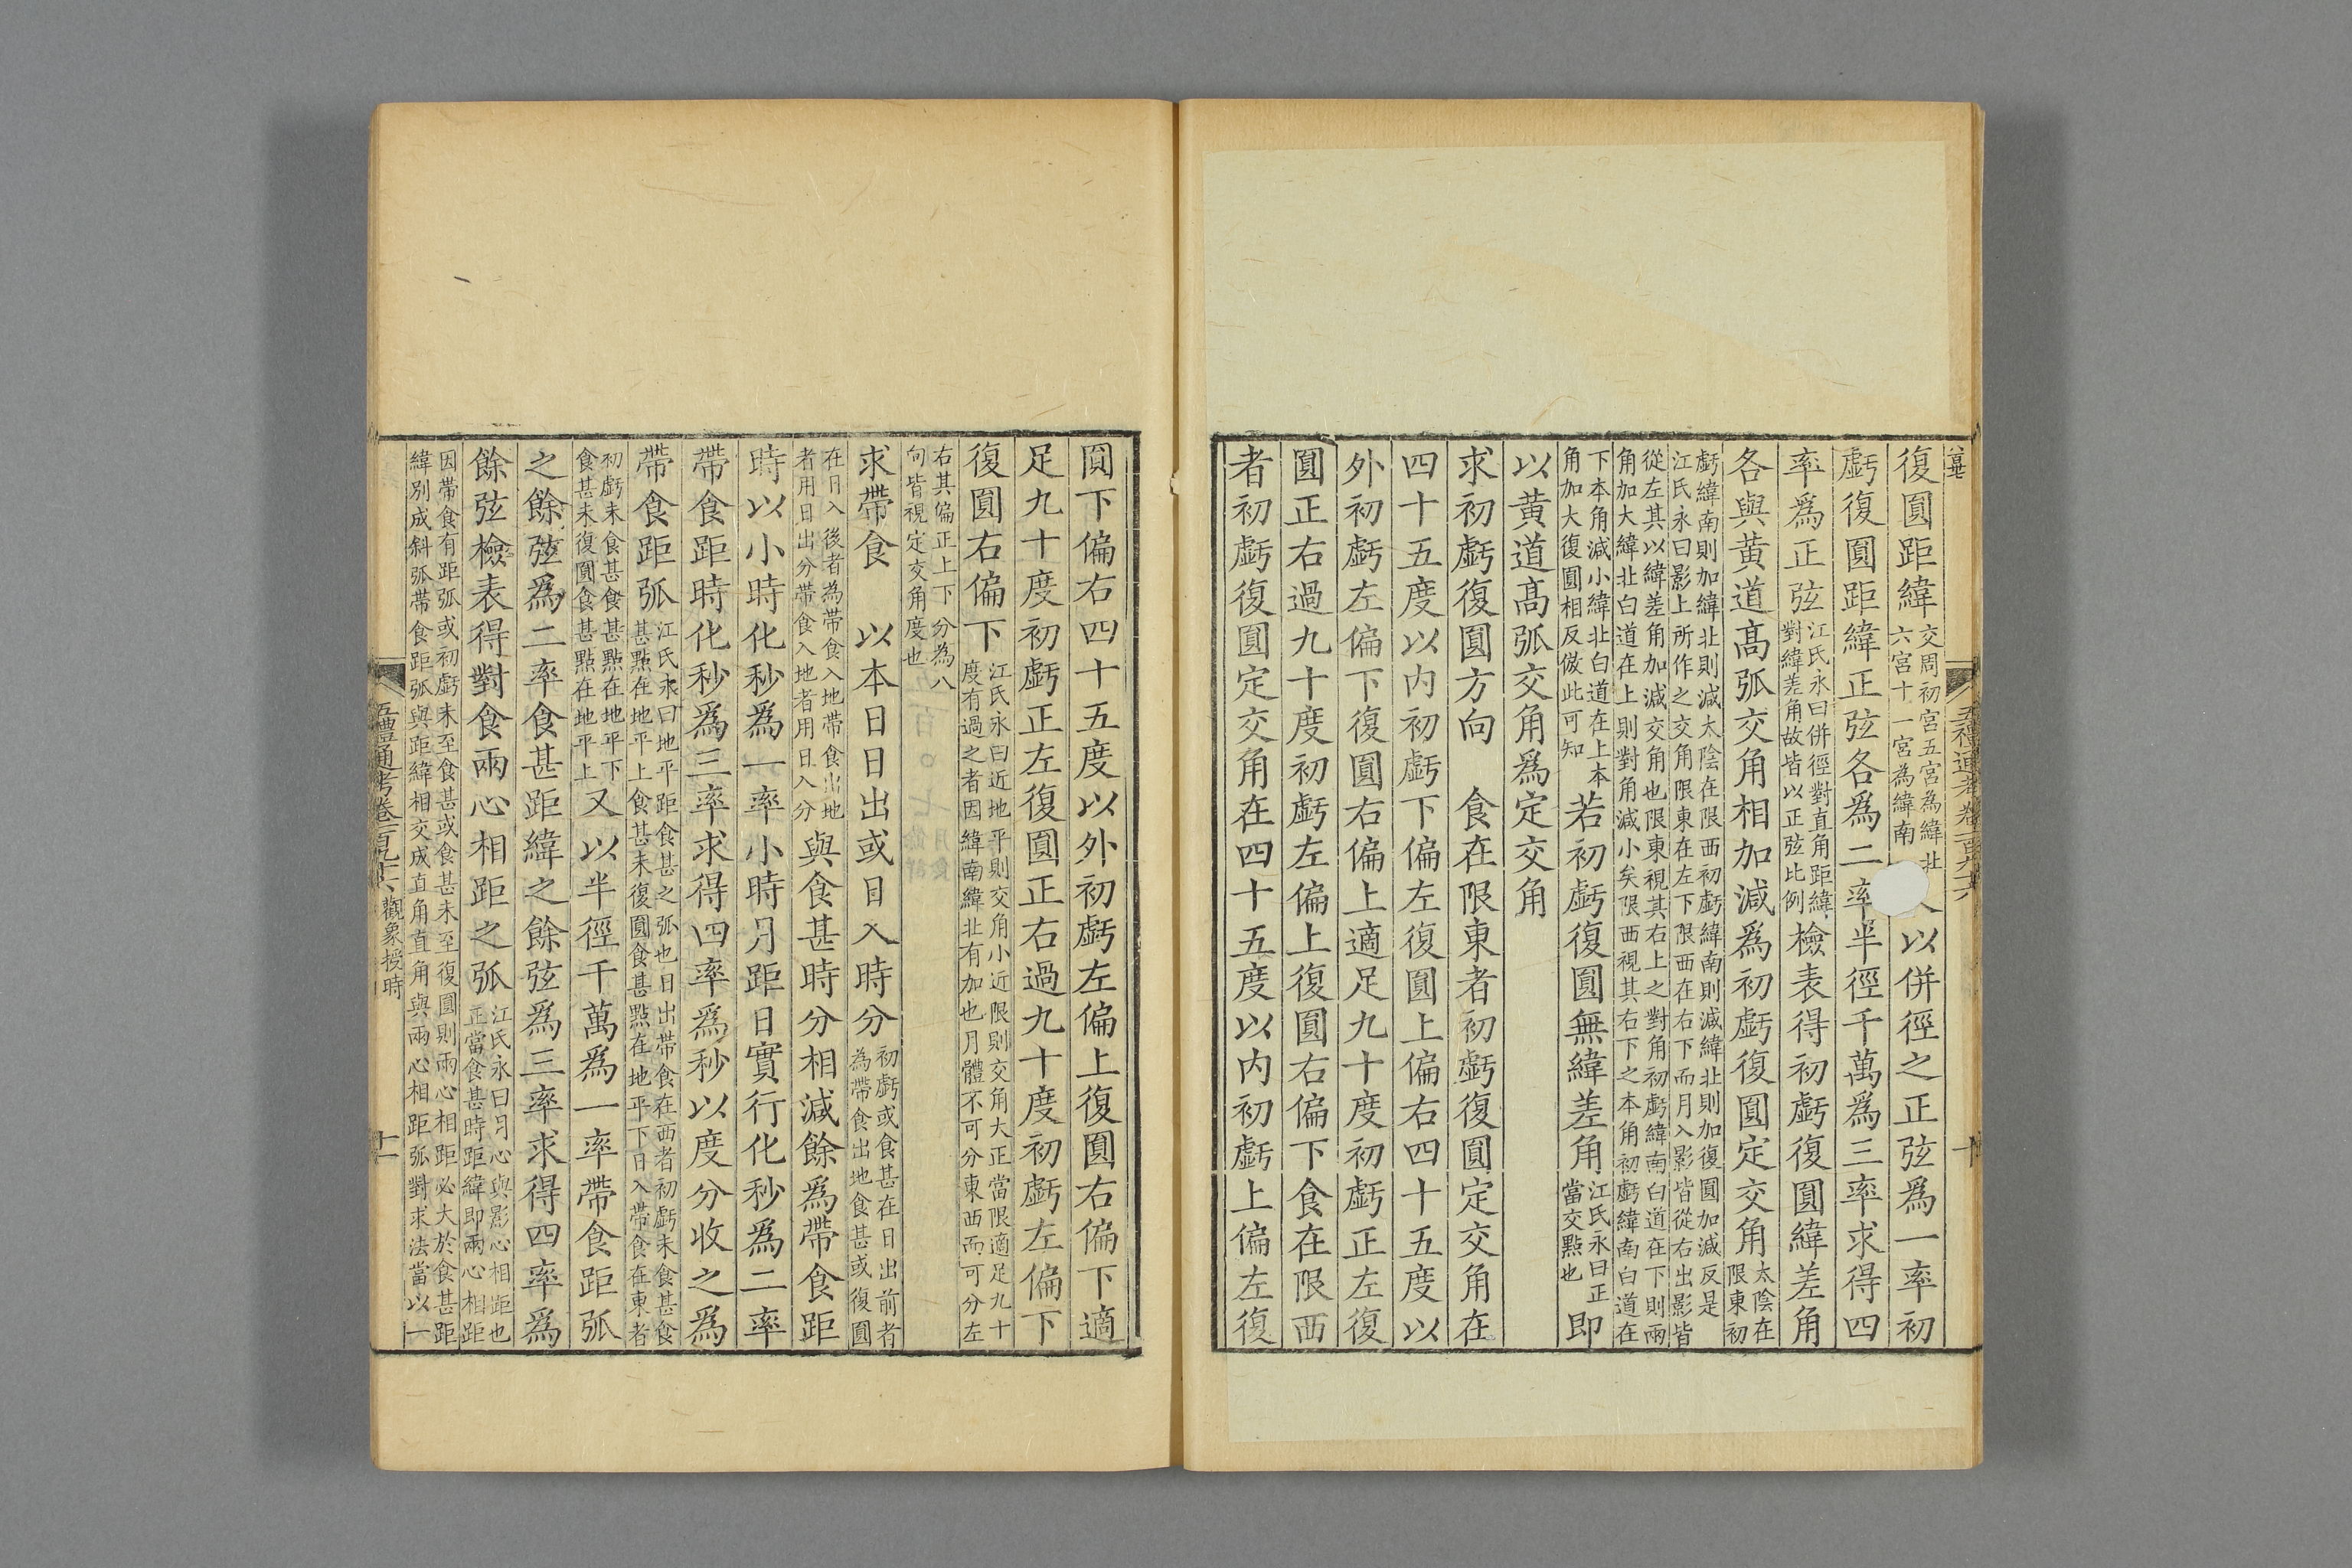 復圓距緯交周初宮五宮為緯北六宮十一宮為緯南 以併徑之正弦為一率初
虧復圓距緯正弦各為二率半徑千萬為三率求得四
率為正弦江氏永曰併徑對直角距緯對緯差角故皆以正弦比例檢表得初虧復圓緯差角
各與黃道高弧交角相加減為初虧復圓定交角太陰在限東初
虧緯南則加緯北則減太陰在限西初虧緯南則減緯北則加復圓加減反是
江氏永曰影上所作之交角限東在左下限西在右下而月入影皆從右出影皆
從左其以緯差角加減交角也限東視其右上之對角初虧緯南白道在下則兩
角加大緯北白道在上則對角減小矣限西視其右下之本角初虧緯南白道在
下本角減小緯北白道在上本角加大復圓相反倣此可知若初虧復圓無緯差角江氏永曰正當交點也即
以黃道高弧交角為定交角
求初虧復圓方向 食在限東者初虧復圓定交角在
四十五度以內初虧下偏左復圓上偏右四十五度以
外初虧左偏下復圓右偏上適足九十度初虧正左復
圓正右過九十度初虧左偏上復圓右偏下食在限西
者初虧復圓定交角在四十五度以內初虧上偏左復
五禮通考卷一百九十六
十
圓下偏右四十五度以外初虧左偏上復圓右偏下適
足九十度初虧正左復圓正右過九十度初虧左偏下
復圓右偏下江氏永曰近地平則交角小近限則交角大正當限適足九十度有過之者因緯南緯北有加也月體不可分東西而可分左
右其偏正上下分為八向皆視定交角度也
求帶食 以本日日出或日入時分初虧或食甚在日出前者為帶食出地食甚或復圓
在日入後者為帶食入地帶食出地者用日出分帶食入地者用日入分與食甚時分相減餘為帶食距
時以小時化秒為一率小時月距日實行化秒為二率
帶食距時化秒為三率求得四率為秒以度分收之為
帶食距弧江氏永曰地平距食甚之弧也日出帶食在西者初虧未食甚食甚點在地平上食甚未復圓食甚點在地平下日入帶食在東者
初虧未食甚食甚點在地平下食甚未復圓食甚點在地平上又以半徑千萬為一率帶食距弧
之餘弦為二率食甚距緯之餘弦為三率求得四率為
餘弦檢表得對食兩心相距之弧江氏永曰月心與影心相距也正當食甚時距緯即兩心相距
因帶食有距弧或初虧未至食甚或食甚未至復圓則兩心相距必大於食甚距
緯別成斜弧帶食距弧與距緯相交成直角直角與兩心相距弧對求法當以一
五禮通考卷一百九十六 觀象授時
十一